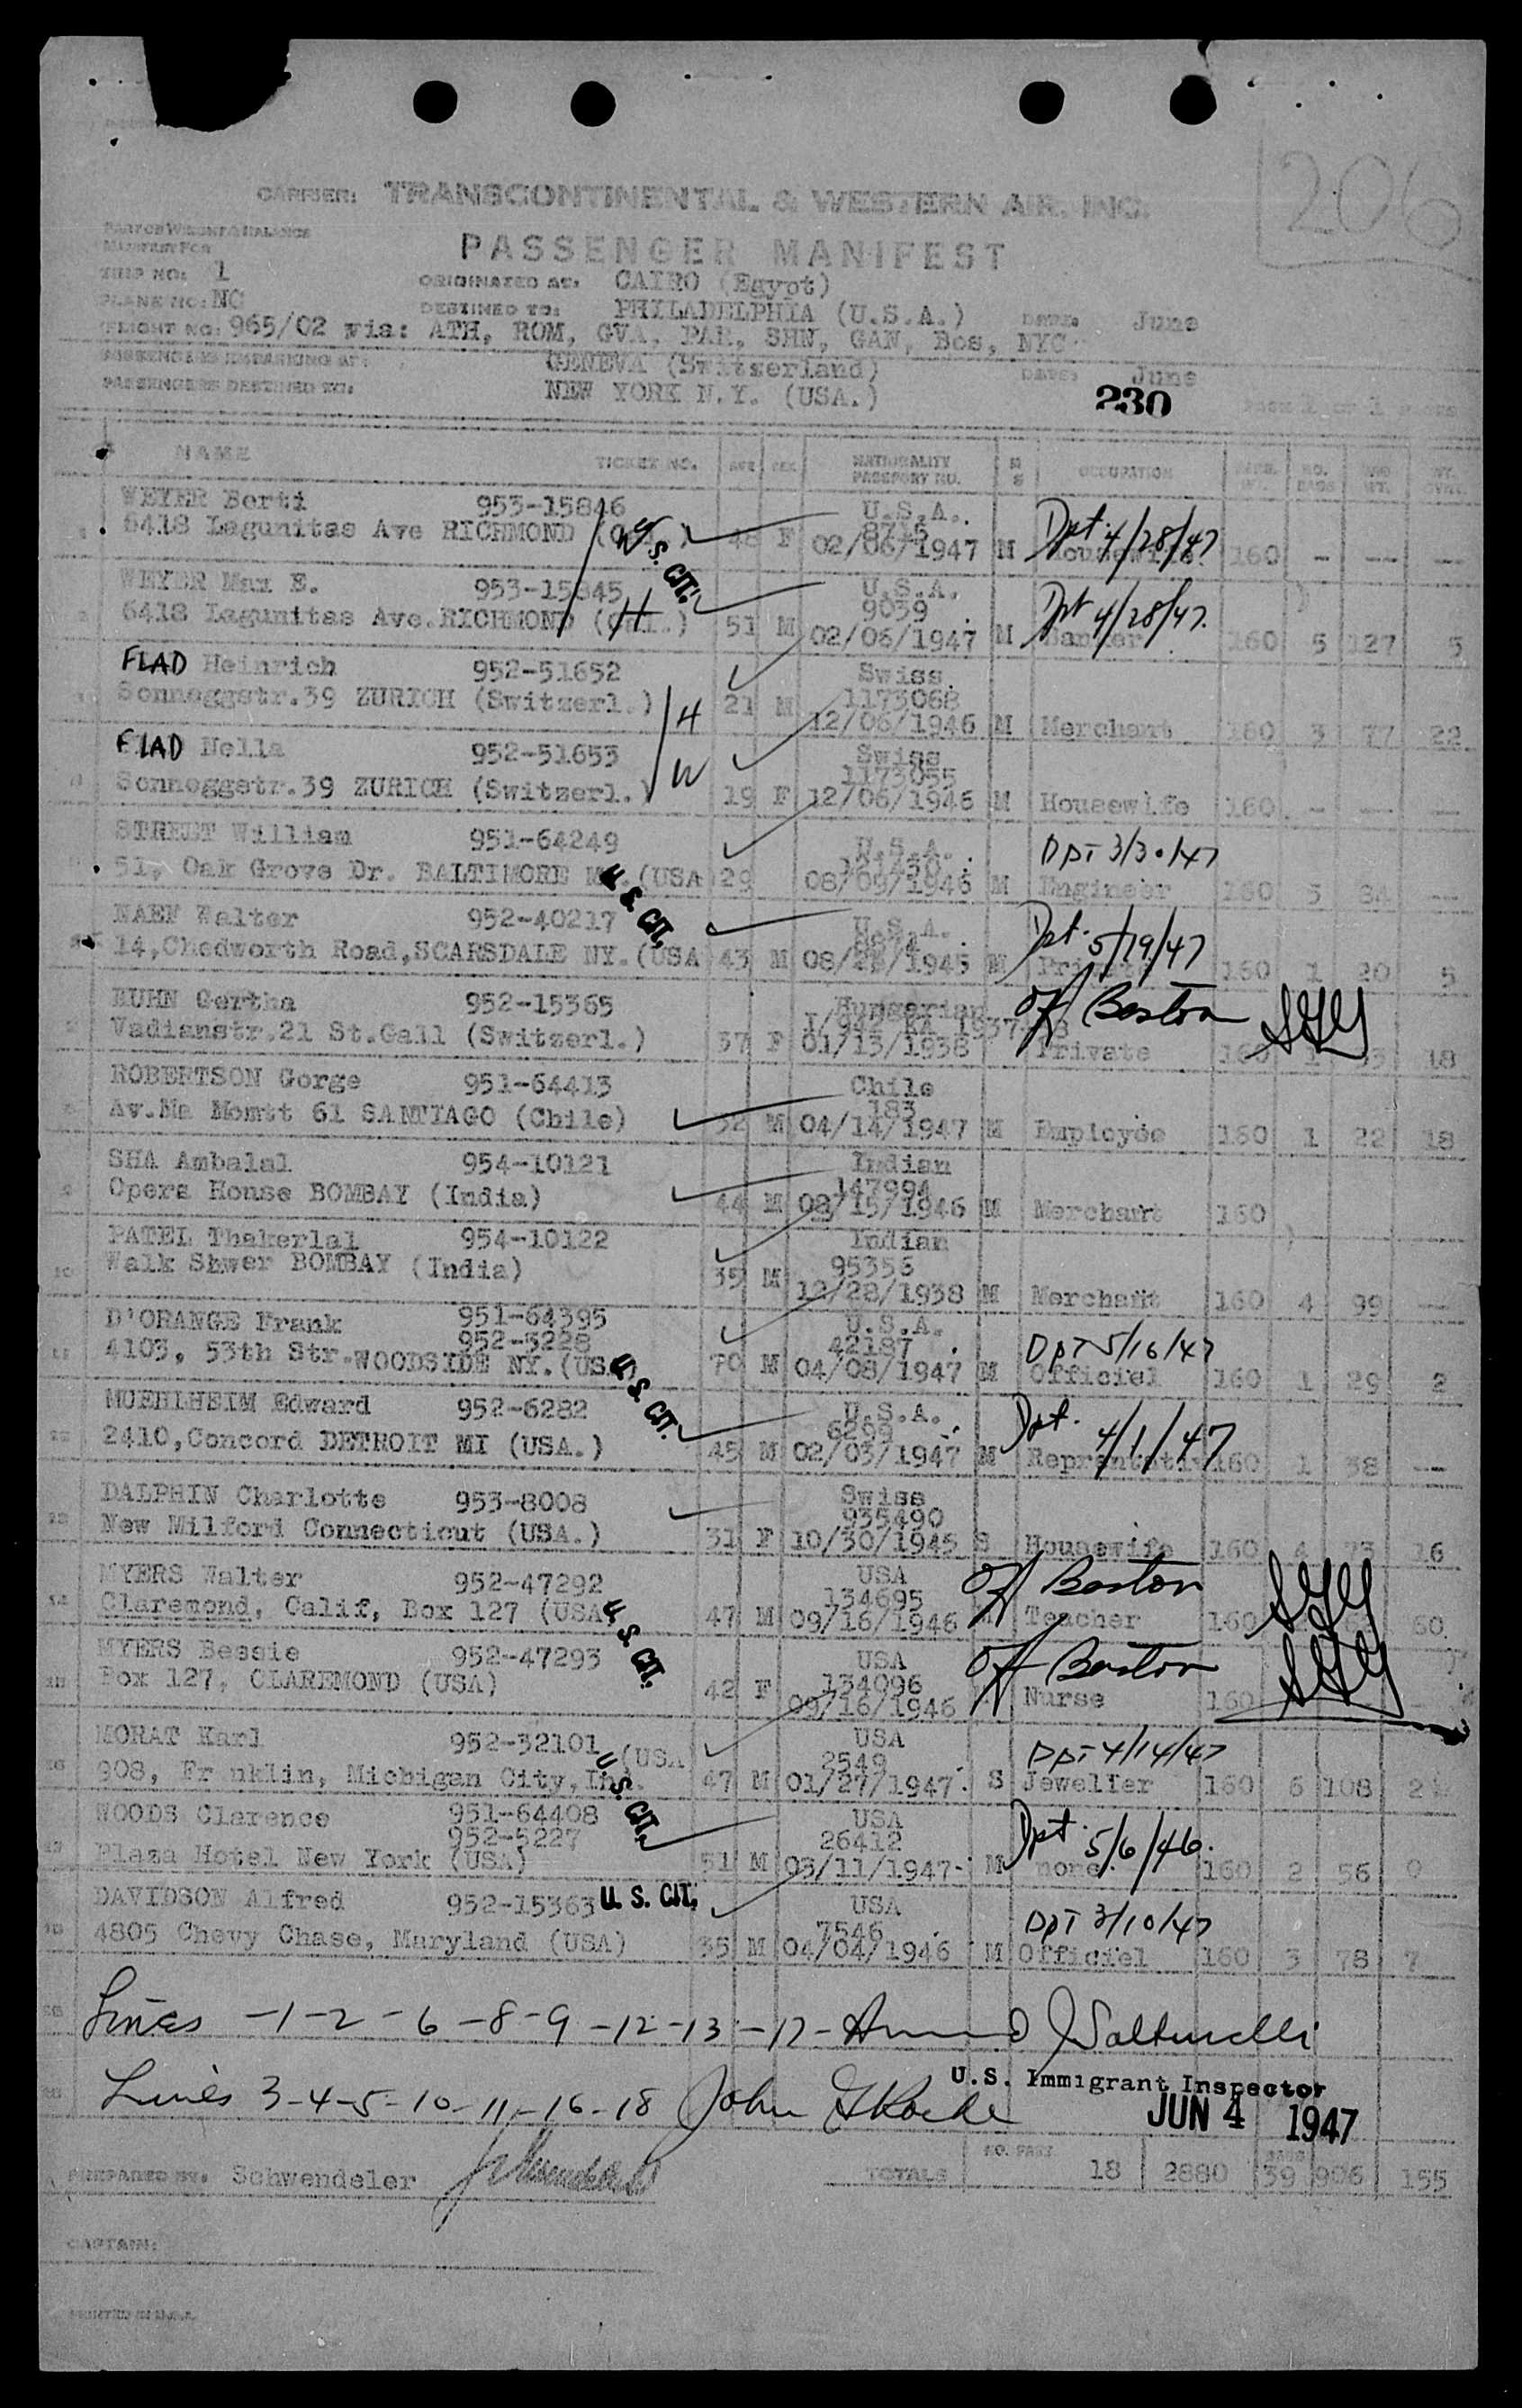 206
CARRIER: TRANSCONTINENTAL & WESTERN AIR. INC.
PASSENGER MANIFEST
PART OF WEIGHT & BALANCE
MANIFEST FOR
TRIP NO: 1 ORIGINATED AT: CAIRO (Egypt)
PLANE NO: NC DESTINED TO: PHILADELPHIA (U.S.A.) DATE: June
FLIGHT NO: 965/02 via: ATH, ROM, GVA, PAR, SHN, GAN, Bos, NYC
PASSENGERS EMBARKING AT: GENEVA (Switzerland) DATE: June
PASSENGERS DESTINED TO: NEW YORK N.Y. (USA.)
230 PAGE 1 OF 1 PAGES
NAME TICKET NO. AGE SEX NATIONALITY PASSPORT NO. M S OCCUPATION PASS. WT. NO. BAGS BAG WT. WT. OVWT.
WEYER Berti 953-15846 U.S.A. Dpt. 4/28/47
8715
1 5418 Lagunitas Ave RICHMOND (Cal.) W U.S. CIT. 48 F 02/06/1947 M Housewife 160 - -- --
WEYER Max E. 953-15845 U.S.A. Dpt 4/28/47.
9039
2 5418 Lagunitas Ave. RICHMOND (Cal.) H 51 M 02/06/1947 M Banker 160 5 127 5
FLAD Heinrich 952-51652 Swiss
1173068
Sonneggstr.39 ZURICH (Switzerl.) H 21 M 12/06/1946 M Merchant 160 3 77 22
FLAD Nella 952-51653 Swiss
1173055
Sonneggstr.39 ZURICH (Switzerl.) W 19 F 12/06/1946 M Housewife 160 - -- --
STREET William 951-64249 U.S.A. DPT 3/30/47
51, Oak Grove Dr. BALTIMORE (USA 29 08/09/1946 M Engineer 160 5 84 --
NAEF Walter 952-40217 U.S. CIT. U.S.A. Dpt. 5/19/47
14,Chedworth Road,SCARSDALE NY.(USA 43 M 1945 M Private 160 1 20 5
KUHN Gertha 952-15365 Hungarian Off Boston SGY
Vadianstr.21 St.Gall (Switzerl.) 57 F 01/13/1938 Private 160 18
ROBERTSON Gorge 951-64413 Chile
183
Av.Ma Montt 61 SANTIAGO (Chile) 32 M 04/14/1947 M Employée 160 1 22 18
SHA Ambalal 954-10121 Indian
147994
Opera House BOMBAY (India) 44 M 08/15/1946 M Merchant 160
PATEL Thakerlal 954-10122 Indian
95356
10 Walk Shwer BOMBAY (India) 35 M 12/22/1938 M Merchant 160 4 99 --
D'ORANGE Frank 951-64395 U.S.A.
952-3228 42187 DPT 5/16/47
11 4103, 53th Str. WOODSIDE NY.(USA) 70 M 04/08/1947 M Officiel 160 1 29 2
U.S. CIT.
MUEHLHEIM Edward 952-6282 U.S.A. Dpt. 4/1/47
6299
2410,Concord DETROIT MI (USA.) 45 M 02/03/1947 M 160 1 38 --
DALPHIN Charlotte 953-8008 Swiss
935490
13 New Milford Connecticut (USA.) 31 F 10/30/1945 S Housewife 160 4 73 16
MYERS Walter 952-47292 USA Off Boston SGY
134695
14 Claremond, Calif, Box 127 (USA 47 M 09/16/1946 Teacher 160 60
U.S. CIT.
MYERS Bessie 952-47293 USA Off Boston SGY
134096
Box 127, CLAREMOND (USA) 42 F 09/16/1946 Nurse 160
MORAT Karl 952-32101 (USA USA DPT 4/14/47
2549
16 908, Franklin, Michigan City, Ind. 47 M 01/27/1947 S Jeweller 160 6 108
U.S. CIT.
WOODS Clarence 951-64408 USA Dpt. 5/6/46.
952-5227 26412
17 Plaza Hotel New York (USA) 51 M 03/11/1947 M none 160 2 56 0
DAVIDSON Alfred 952-15363 U.S. CIT. USA
7546 DPT 3/10/47
18 4805 Chevy Chase, Maryland (USA) 35 M 04/04/1946 M Officiel 160 3 78 7
Lines -1-2-6-8-9-12-13-17-
Lines 3-4-5-10-11-16-18 John
U.S. Immigrant Inspector
JUN 4 1947
PREPARED BY: Schwendeler TOTALS NO. PASS. 18 2880 BAGS 39 906 155
CAPTAIN:
PRINTED IN U.S.A.